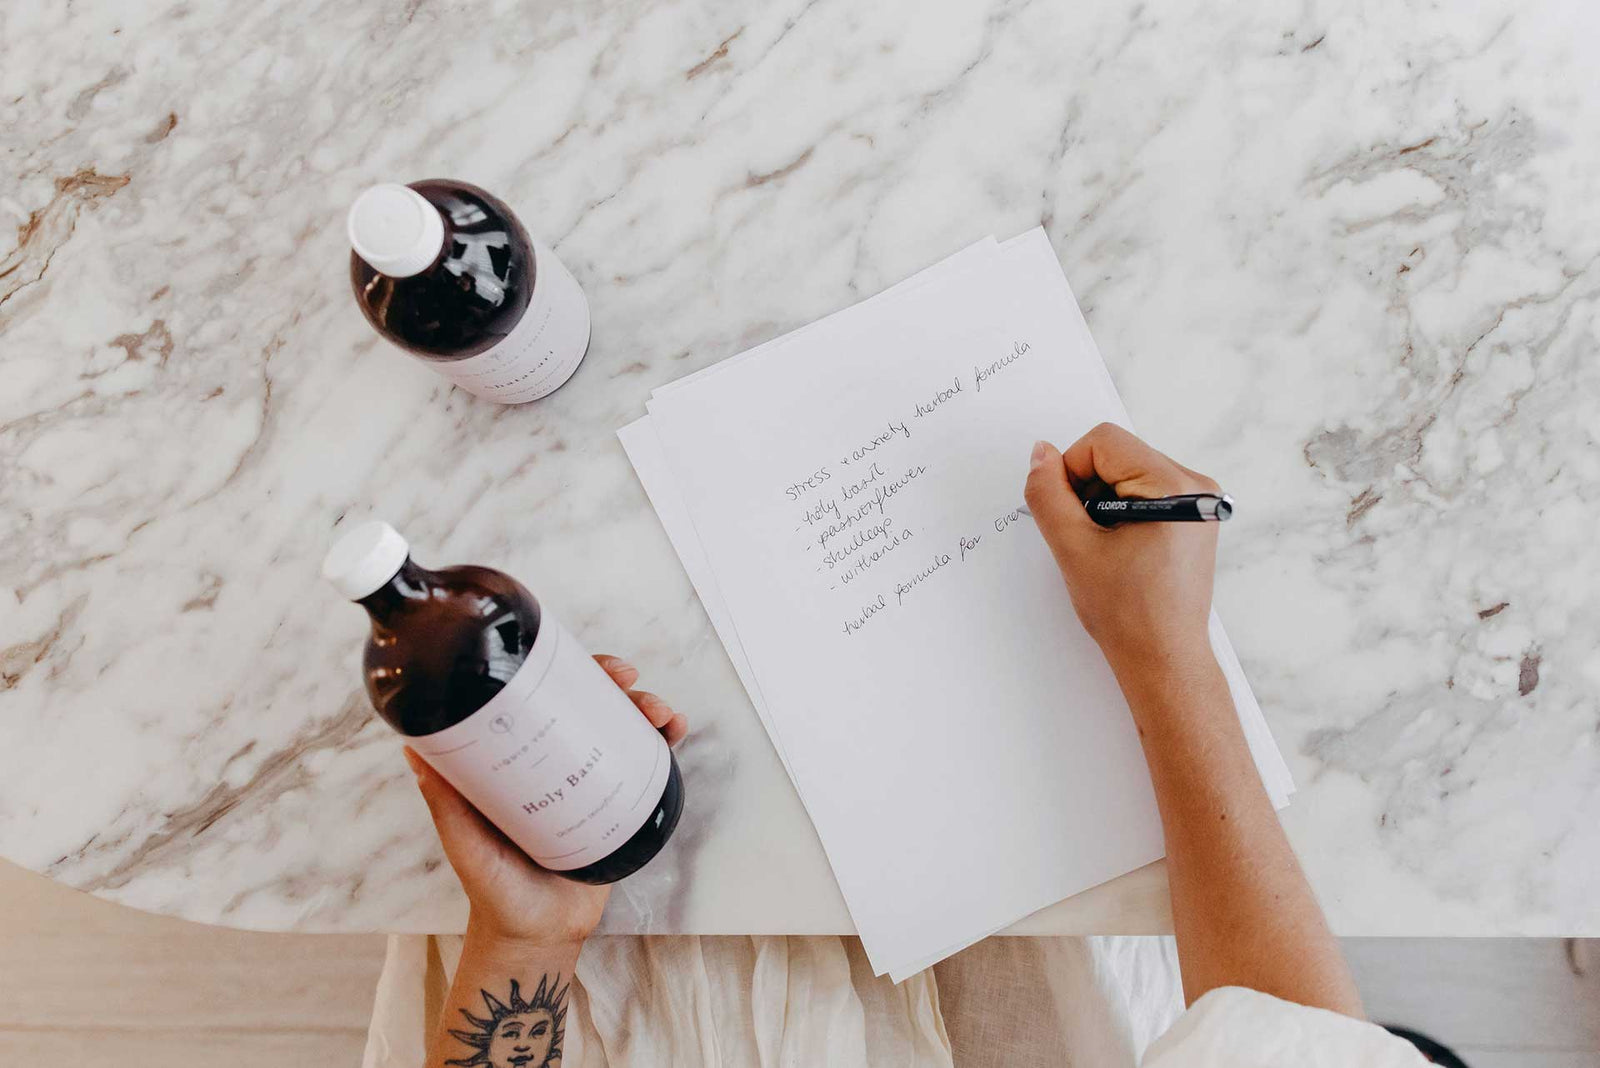 Shatavari
LIQUID YOGA
Holy Basil
LEAF
stress + anxiety herbal formula
- holy basil
- passionflower
- skullcap
- withania
herbal formula for Ene
FLORDIS